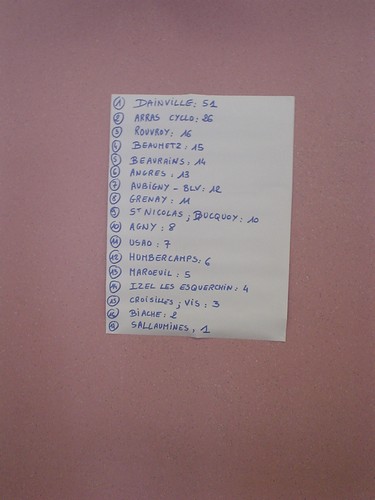 1 DAINVILLE: 51
2 ARRAS CYCLO: 26
3 ROUVROY: 16
4 BEAUMETZ: 15
5 BEAURAINS: 14
6 ANGRES: 13
7 AUBIGNY - BLV: 12
8 GRENAY: 11
9 ST NICOLAS; BUCQUOY: 10
10 AGNY: 8
11 USAO: 7
12 HUMBERCAMPS: 6
13 MAROEUIL: 5
14 IZEL LES ESQUERCHIN: 4
15 CROISILLES; VIS: 3
16 BIACHE: 2
SALLAUMINES, 1